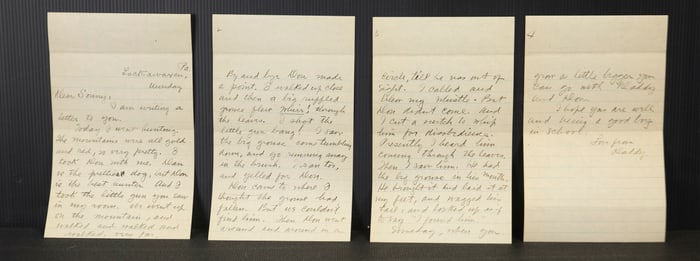 Pa.
Lackawaxen,
Sunday
Dear Sonny:
I am writing a
letter to you.
Today I went hunting.
The mountains were all gold
and red, so very pretty. I
took Don with me. Dan
is the prettiest dog, but Don
is the best hunter. And I
took the little gun you saw
in my room. We went up
on the mountain, and
walked and walked and
walked, very far.
2
By and bye Don made
a point. I walked up close
and then a big ruffled
grouse flew Whirr! through
the leaves. I shot the
little gun bang! I saw
the big grouse come tumbling
down, and go running away
in the brush. I ran too,
and yelled for Don.
Don came to where I
thought the grouse had
fallen. But we couldn't
find him. Then Don went
around and around in a
3
circle, till he was out of
sight. I called and
blew my whistle. But
Don didn't come. And
I cut a switch to whip
him for disobedience.
Presently I heard him
coming through the leaves.
Then I saw him. He had
the big grouse in his mouth.
He brought it and laid it at
my feet, and wagged his
tail, and looked up as if
to say "I found him."
Someday, when you
4
grow a little bigger you
can go with Daddy
and Don.
I hope you are well
and being a good boy
in school.
Love from
Daddy